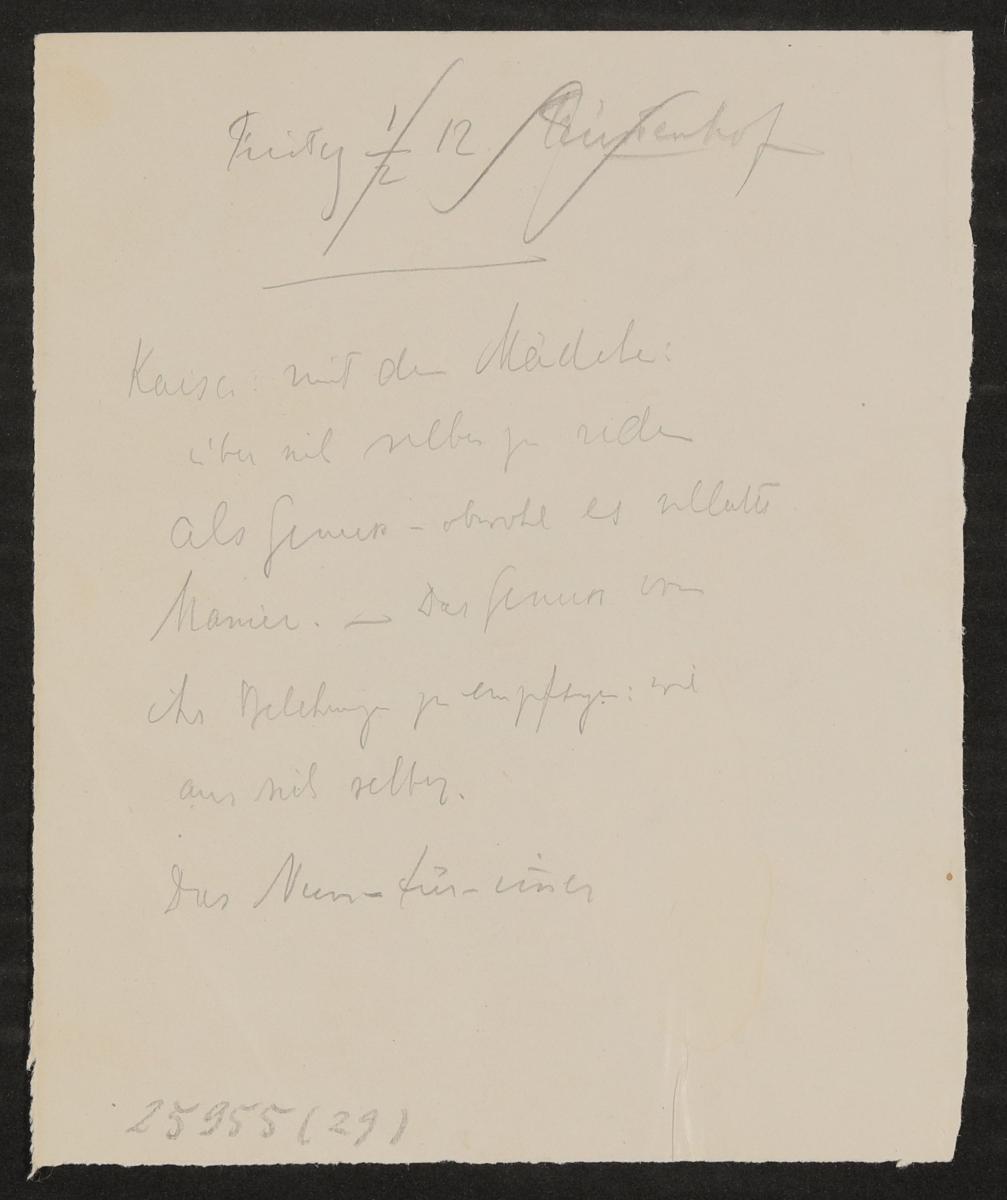 Freitag 1/2 12 Fürstenhof
Kaiser: mit dem Mädchen:
über sich selber zu reden
als Genuss – obwohl es
Manier. – Der Genuss von
ihr Belehrungen zu empfangen: wie
aus sich selber.
Das Neun-für-einer
25955 (29)